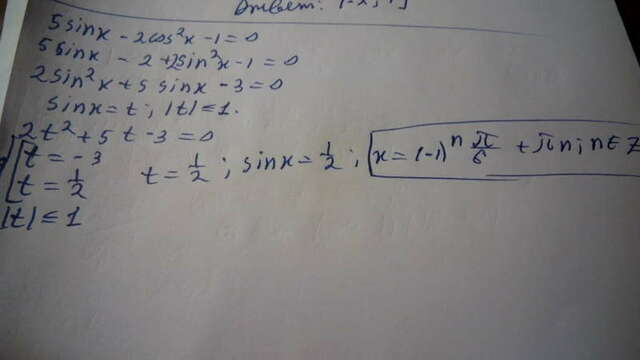 Ответ: [-2; 1]
5 sinx - 2cos²x - 1 = 0
5 sinx - 2 + 2sin²x - 1 = 0
2 sin²x + 5 sinx - 3 = 0
sinx = t; |t| ≤ 1.
2t² + 5t - 3 = 0
t = -3
t = 1/2 t = 1/2; sinx = 1/2; x = (-1)ⁿ π/6 + πn; n ∈ Z
|t| ≤ 1